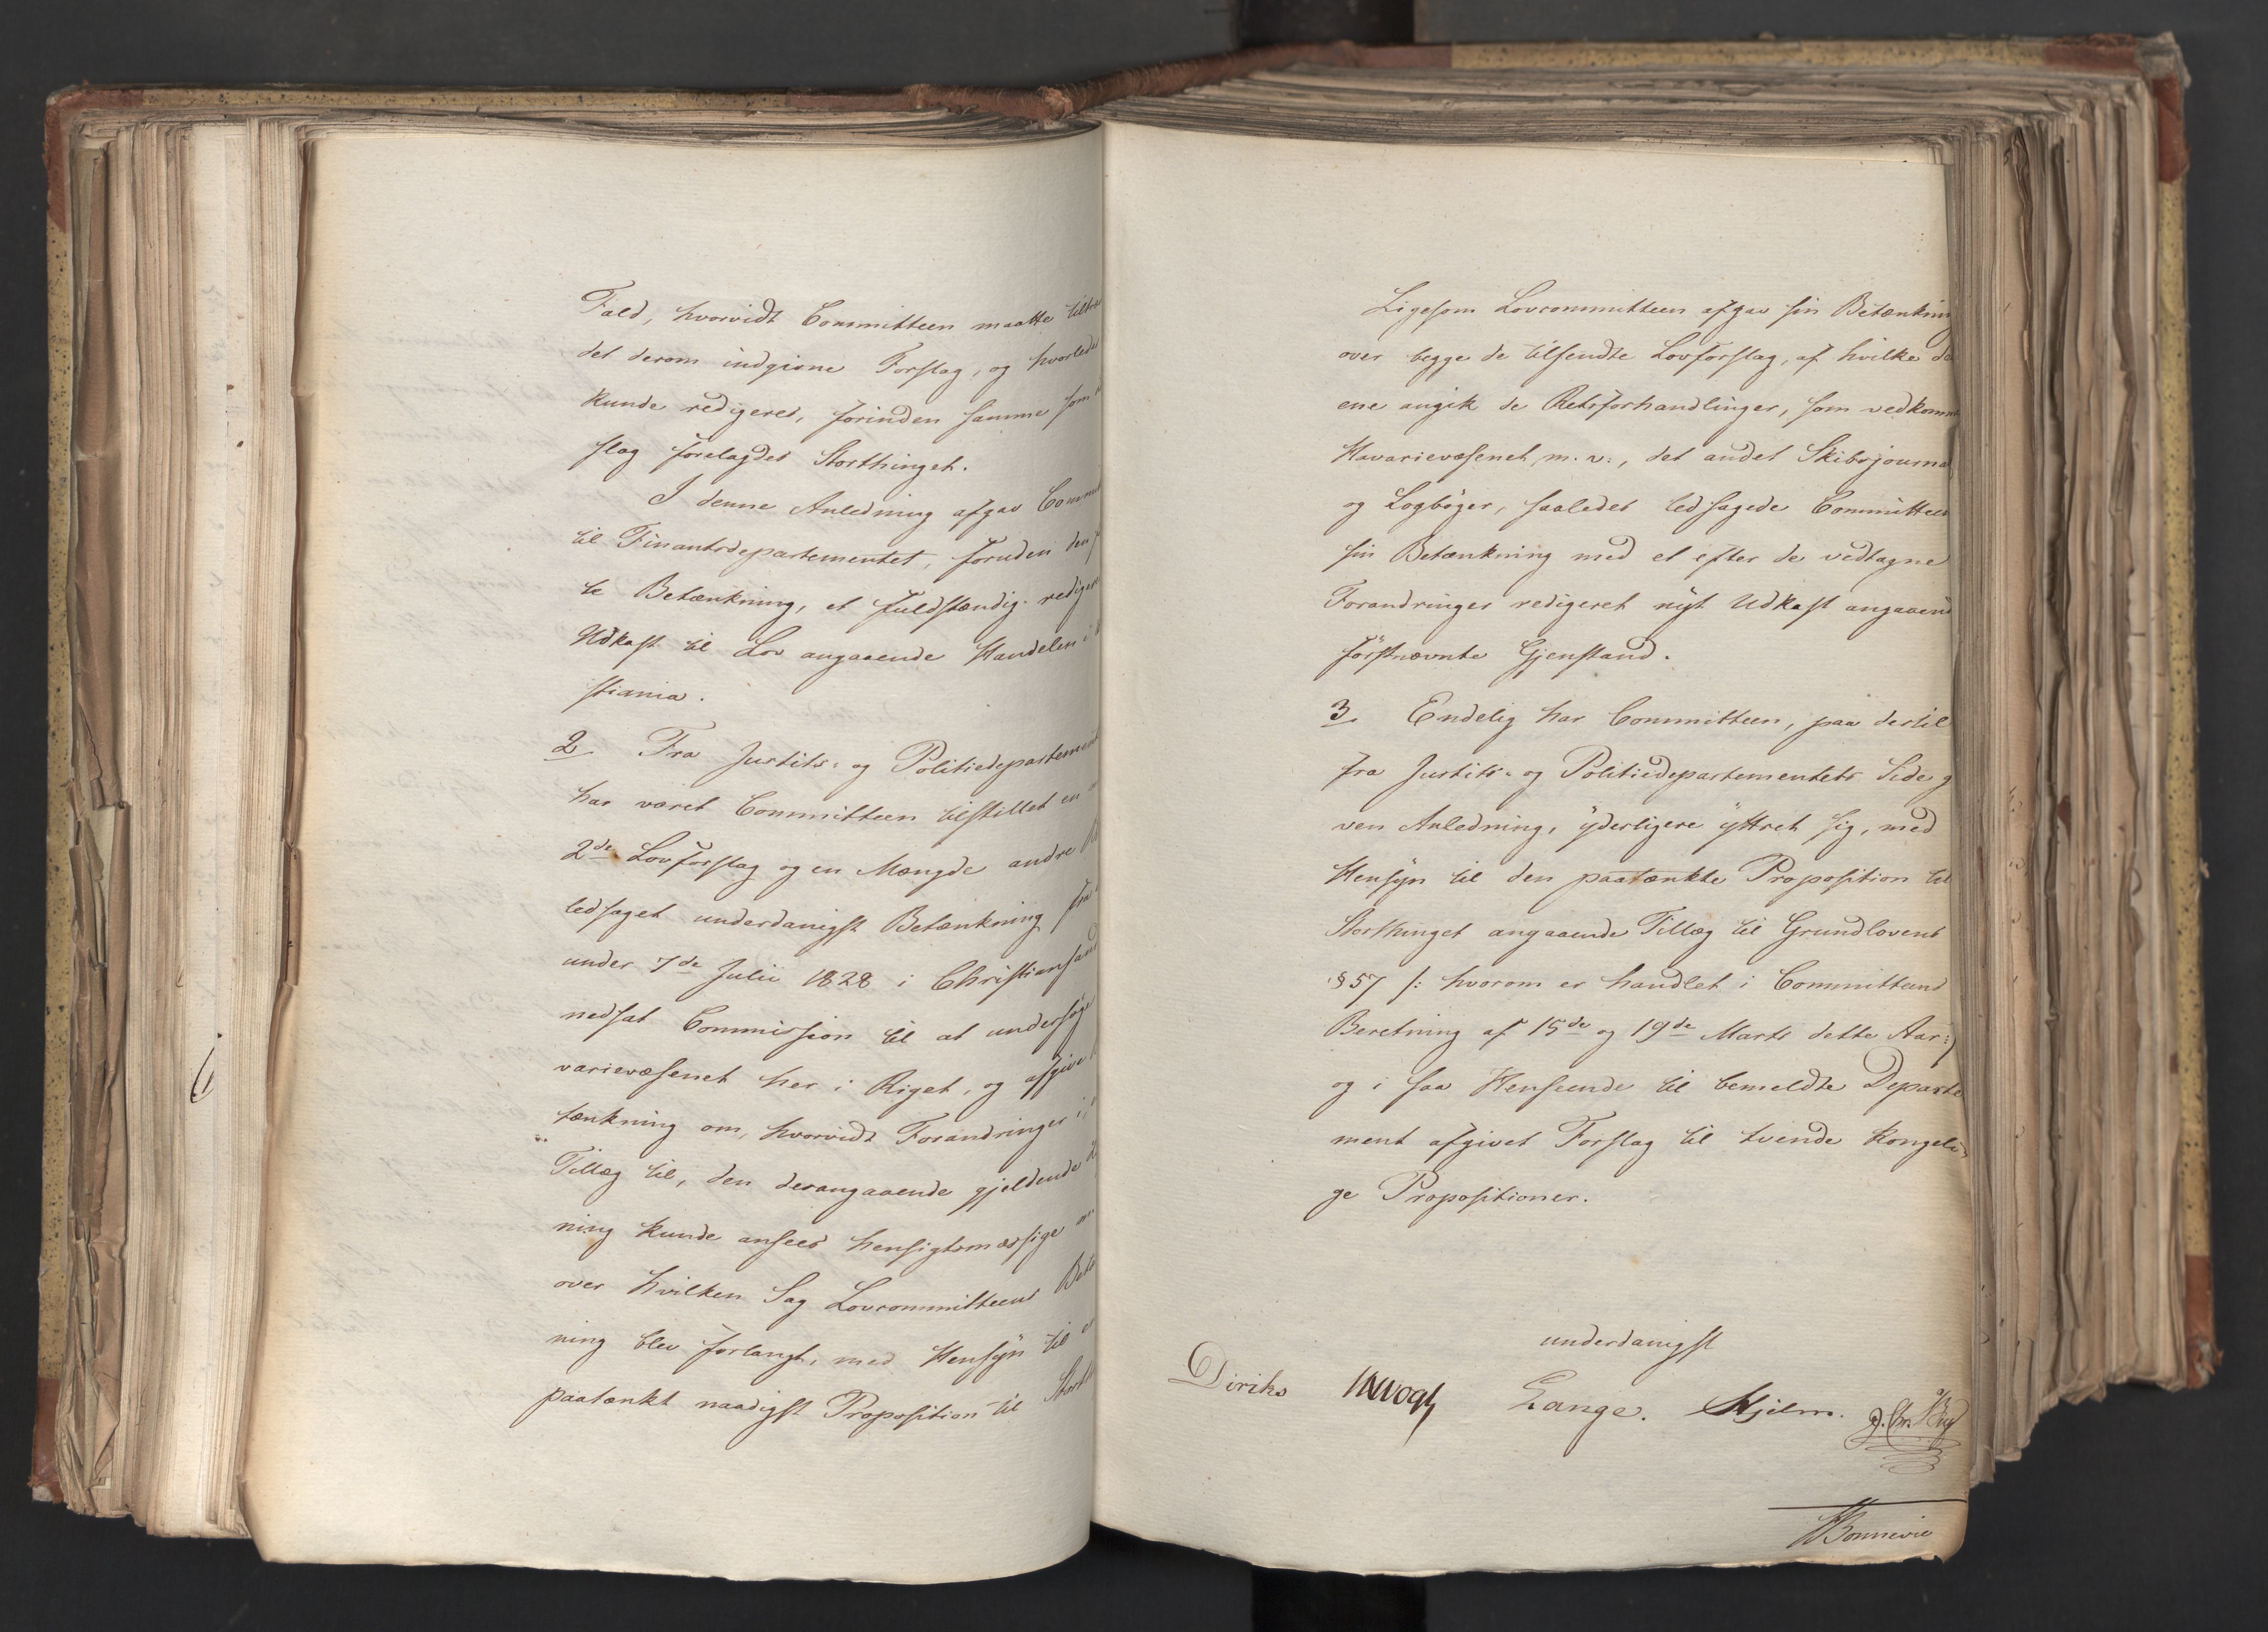 Fald, hvorvidt Committeen maatte
det derom indgivne Forslag, og hvorledes
kunde redigeres, forinden samme som
slag forelagdes Storthinget.
I denne Anledning afgav
til Finantsdepartementet, foruden den
te Betænkning, et fuldstændig
Udkast til Lov angaaende Handelen i
stiania.
2 Fra Justits- og Politiedepartement
har været Committeen tilstillet en
2de Lovforslag og en Mængde andre
ledsaget underdanigst Betænkning fra
under 7de Julii 1828 i Christiansand
nedsat Commission til at undersøge
varievæsenet her i Riget, og afgive
tænkning om, hvorvidt Forandringer i,
Tillæg til, den derangaaende gjeldende
ning kunde ansees hensigtsmæssige
over hvilken Sag Lovcommitteens
ning blev forlangt, med Hensÿn til
paatænkt naadigst Proposition til
Ligesom Lovcommitteen afgav sin Betænkning
over begge de tilsendte Lovforslag, af hvilke
ene angik de Retsforhandlinger, som
Havarievæsenet m. v., det andet
og Logbøger, saaledes ledsagede Committeen
sin Betænkning med et efter de vedtagne
Forandringer redigeret nÿt Udkast angaaend
förstnævnte Gjenstand.
3 Endelig har Committeen, paa dertil
fra Justits- og Politiedepartementets Side g
ven Anledning, ÿderligere ÿttret sig, med
Hensÿn til den paatænkte Proposition til
Storthinget angaaende Tillæg til Grundlovens
§ 57 /: hvorom er handlet i Committeens
Beretning af 15de og 19de Marts dette Aar :/
og i saa Henseende til bemeldte Departe
ment afgivet Forslag til tvende Kongeli-
ge Propositioner.
underdanigst
Diriks Vogt Lange. Hjelm.
Bonnevie